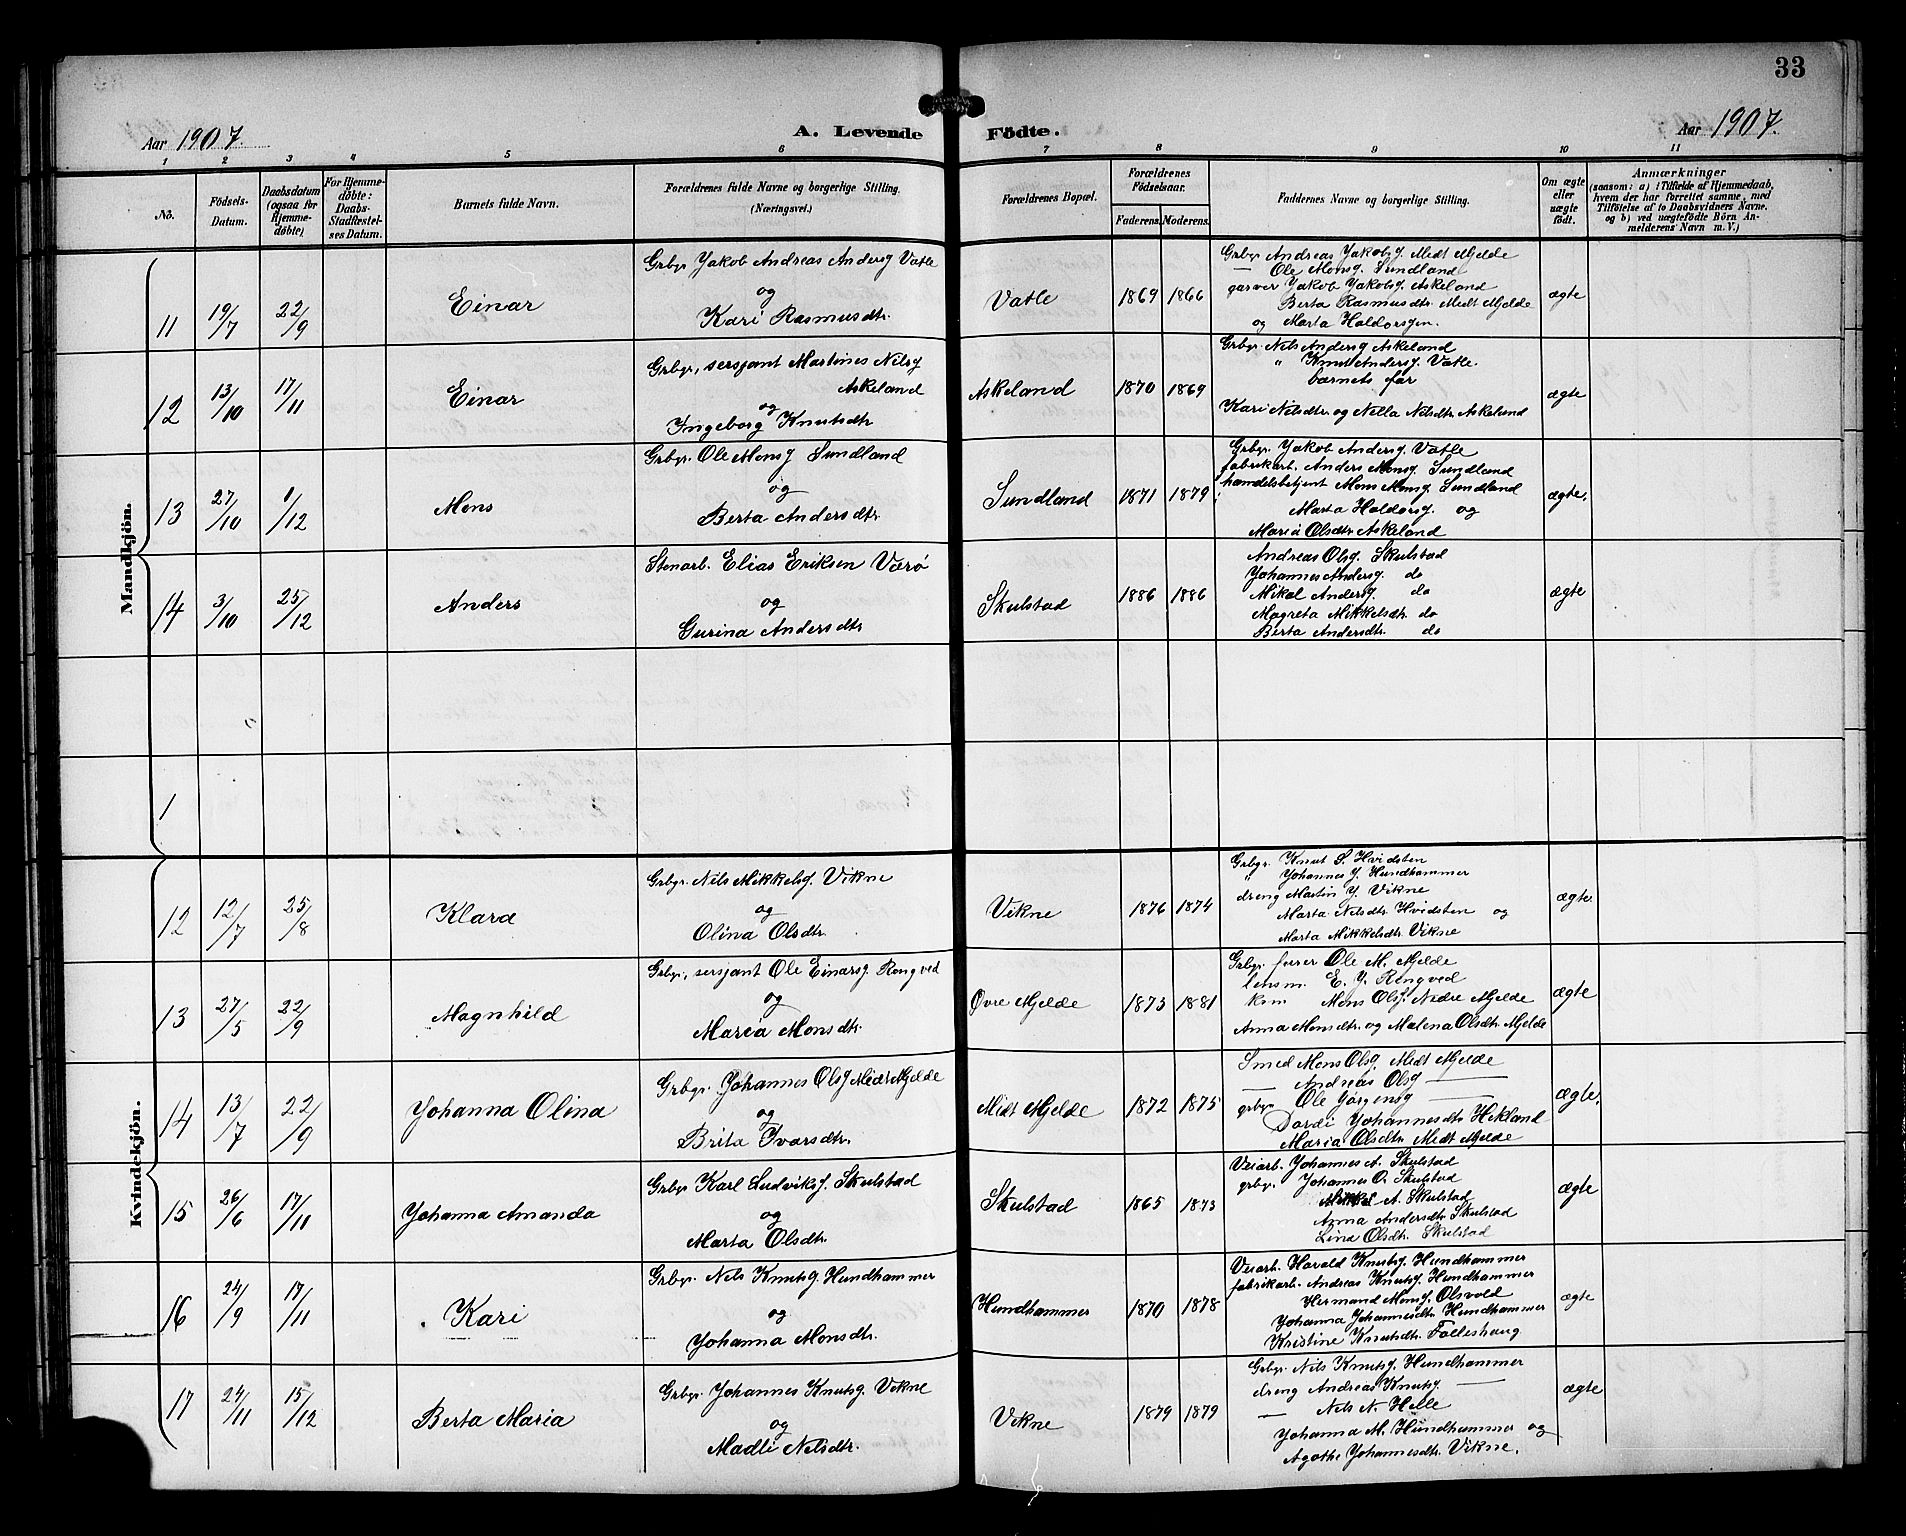 33
Aar 1907.
A. Levende Födte.
Aar 1907.
1 2 3 4 5 6 7 8 9 10 11
No.
Födsels-Datum.
Daabsdatum (ogsaa for Hjemmedöbte)
For Hjemmedöbte: Daabs-Stadfæstelses Datum.
Barnets fulde Navn.
Forældrenes fulde Navne og borgerlige Stilling.
(Næringsvei.)
Forældrenes Bopæl.
Forældrenes Födselsaar.
Faderens. Moderens.
Faddernes Navne og borgerlige Stilling.
Om ægte eller uægte födt.
Anmærkninger
(saasom: a) i Tilfælde af Hjemmedaab, hvem der har forrettet samme, med Tilföielse af to Daabsvidners Navne, og b) ved uægtefödte Börn Anmelderens Navn m. V.)
Mandkjön.
11 19/7 22/9 Einar
Grbgr Yakob Andreas Andersg Vatle
og
Kari Rasmusdtr.
Vatle 1869 1866
Grbgr Andreas Yakobsg. Midt Mjelde
— Ole Monsg. Sundland
garver Yakob Yakobsg. Askeland
Berta Rasmusdtr. Midt Mjelde
og Marta Haldorsgen.
ægte
12 13/10 17/11 Einar
Grbgr, sersjant Martines Nilsg
Askeland
og
Ingeborg Knutsdtr
Askeland 1870 1869
Grbgr. Nils Andersg Askeland
" Knut Andersg. Vatle.
barnets far
Kari Nilsdtr. og Nella Nilsdtr. Askeland
ægte
13 27/10 1/12 Mons
Grbgr. Ole Monsg Sundland
og
Berta Andersdtr.
Sundland 1871 1879
Grbgr. Yakob Andersg. Vatle
fabrikarb. Anders Monsg. Sundland
handelsbetjent Mons Monsg. Sundland
Marta Haldorsg. og
Maria Olsdtr. Askeland
ægte.
14 3/10 25/12 Anders
Stenarb. Elias Eriksen Værø
og
Gurina Andersdtr
Skulstad 1886 1886
Andreas Olsg. Skulstad
Yohannes Andersg. do
Mikal Andersg. do
Magreta Mikkelsdtr. do
Berta Andersdtr. do
ægte
1
Kvindekjön.
12 12/7 25/8 Klara
Grbgr. Nils Mikkelsg. Vikne
og
Olina Olsdtr.
Vikne 1876 1874
Grbgr. Knut S. Hvidsten
" Yohannes Y. Hundhammer
dreng Martin Y. Vikne
Marta Nilsdtr. Hvidsten og
Marta Mikkelsdtr. Vikne
ægte.
13 27/5 22/9 Magnhild
Grbgr, sersjant Ole Einarsg. Rongved
og
Maria Monsdtr.
Øvre Mjelde 1873 1881
Grbgr. forrer Ole M. Mjelde
lensm. E. Y. Rongved
Mons Olsg. Nedre Mjelde
Anna Monsdtr. og Malena Olsdtr. Mjelde
ægte
14 13/7 22/9 Yohanna Olina
Grbgr. Yohannes Olsg Midt Mjelde
og
Brita Ivarsdtr.
Midt Mjelde 1872 1875
Smed Mons Olsg. Midt Mjelde
— Andreas Olsg —
grbgr Ole Yørgensg —
Dordi Yohannesdtr Hekland
Maria Olsdtr. Midt Mjelde
ægte.
15 26/6 17/11 Yohanna Amanda
Grbgr. Karl Ludviksg. Skulstad
og
Marta Olsdtr.
Skulstad 1865 1873
Veiarb. Yohannes A. Skulstad
grbgr. Yohannes O. Skulstad
Mikkel A. Skulstad
Anna Andersdtr. Skulstad
Lina Olsdtr. Skulstad
ægte
16 24/9 17/11 Kari
Grbgr. Nels Knutsg. Hundhammer
og
Yohanna Monsdtr.
Hundhammer 1870 1878
Veiarb. Harald Knutsg. Hundhammer
fabrikarb. Andreas Knutsg. Hundhammer
Hermand Monsg. Olsvold
Yohanna Yohannesdtr. Hundhammer
Kristine Knutsdtr. Folleshaug
ægte
17 24/11 15/12 Berta Maria
Grbgr. Yohannes Knutsg. Vikne
og
Madli Nelsdtr.
Vikne 1879 1879
Grbgr. Nils Knutsg. Hundhammer
dreng Andreas Knutsg. —
— Nels N. Helle
Yohanna M. Hundhammer og
Agathe Yohannesdtr. Vikne.
ægte